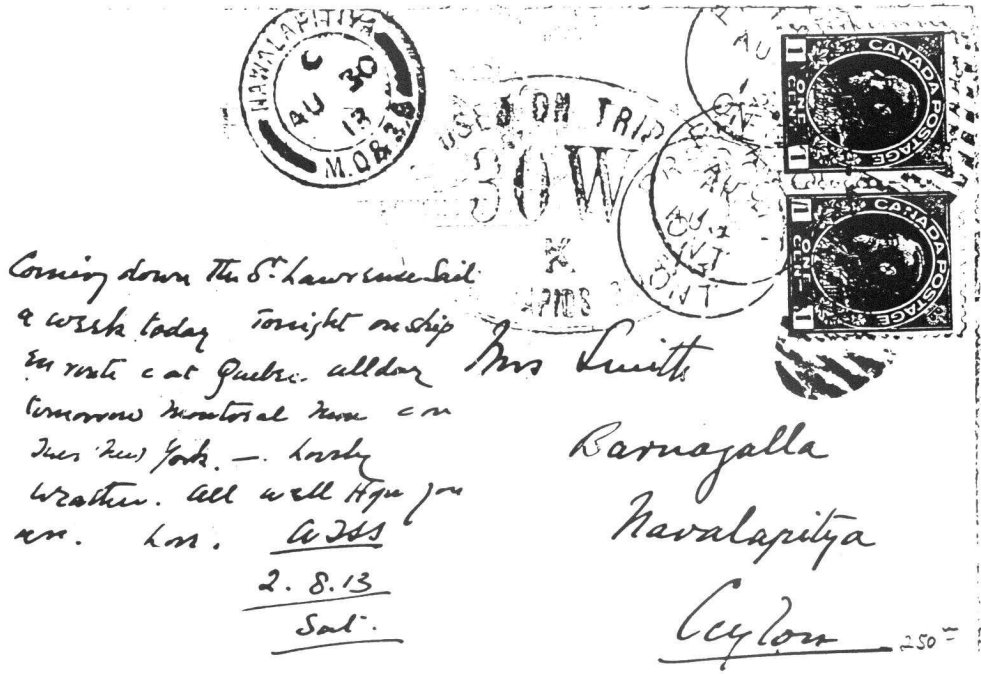 NAWALAPITIYA
C
AU 30
13
M.O&S.B
USED ON TRIP
30W
K
APIDS
AU
ONT
AU
ONT
CANADA POSTAGE
1 ONE CENT 1
CANADA POSTAGE
1 ONE CENT 1
Coming down the St Lawrence Sail
a week today Tonight on ship
En route c at Quebec all day
tomorrow Montreal Mon c on
Tues New York. — Lovely
weather. All well Hope you
are. Love. AJSS
2. 8. 13
Sat.
Mrs Smith
Barnagalla
Navalapitya
Ceylon
250